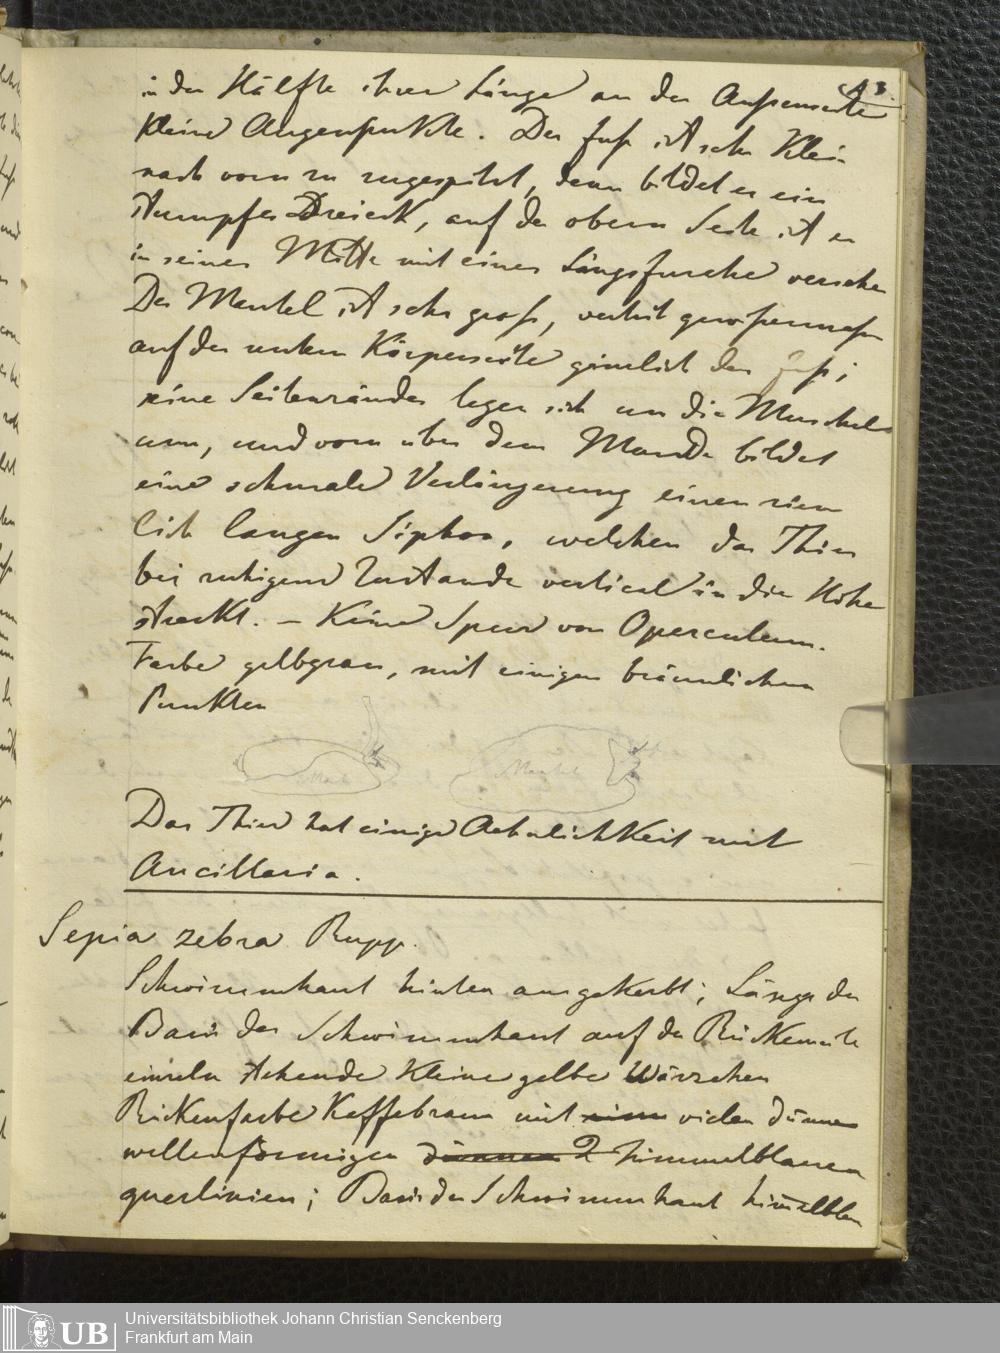 13.
in der Hälfte ihrer Länge an der Aussenseite
kleine Augenpunkte. Der Fuss ist sehr klein
nach vorn zu zugespitzt, dann bildet er ein
stumpfes Dreieck, auf der obern Seite ist er
in seiner Mitte mit einer Längsfurche versehen
Der Mantel ist sehr gross, verhüllt gewissermassen
auf der untern Körperseite gänzlich den Fuss;
seine Seitenränder legen sich um die Muschel
um, und vorn über dem Munde bildet
eine schmale Verlängerung einen ziem
lich langen Siphon, welchen das Thier
bei ruhigem Zustande vertical in die Höhe
streckt. – Keine Spur von Operculum.
Farbe gelbgrau, mit einigen bräunlichen
Punkten
Mantel
Mantel
Das Thier hat einige Aehnlichkeit mit
Ancillaria.
Sepia zebra Rupp.
Schwimmhaut hinten ausgekerbt; Längs der
Basis der Schwimmhaut auf der Rückenseite
einzeln stehende kleine gelbe Wärzchen
Rückenfarbe Kaffebraun mit vielen dünnen
wellenförmigen himmelblauen
querlinien; Basis der Schwimmhaut himelblau
Universitätsbibliothek Johann Christian Senckenberg
Frankfurt am Main
UB